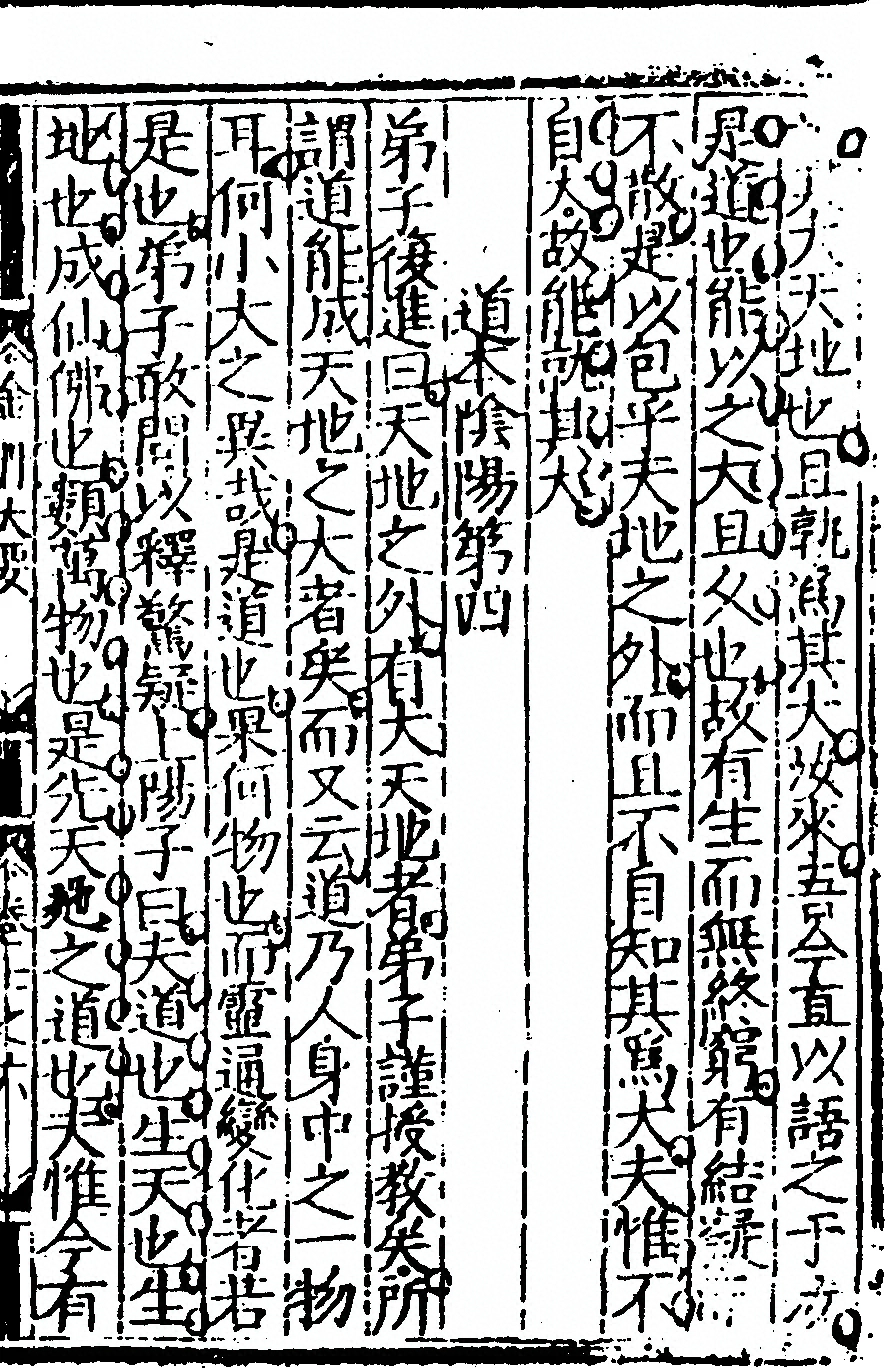 大天地也且孰為其大汝來吾今直以語之于
是道也能以之大且久也故有生而無終窮有結凝
不散是以包乎天地之外而且不自知其為大夫惟不
自大故能成其大
道本陰陽第四
弟子復進曰天地之外有大天地者弟子謹授教矣所
謂道能成天地之大者矣而又云道乃人身中之一物
耳何小大之異哉是道也果何物也而靈通變化者若
是也弟子敢問以釋驚疑上陽子曰夫道也生天也生
地也成仙佛也類萬物也是先天地之道也夫惟今有
金丹大要